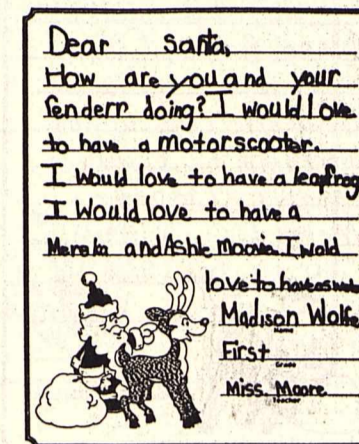 Dear santa,
How are you and your
renderr doing? I would love
to have a motorscooter.
I Would love to have a leapfrog
I Would love to have a
Mereka and Ashle moovie. I wold
love to have
Madison Wolfe
Name
First
Grade
Miss. Moore
Teacher